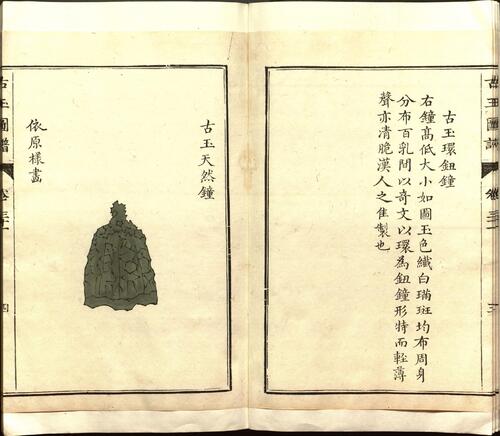 古玉圖譜
三
古玉環鈕鐘
右鐘高低大小如圖玉色纖白璊斑均布周身
分布百乳間以奇文以環為鈕鐘形特而輕薄
聲亦清脆漢人之佳製也
古玉天然鐘
依原樣畫
古玉圖譜
四